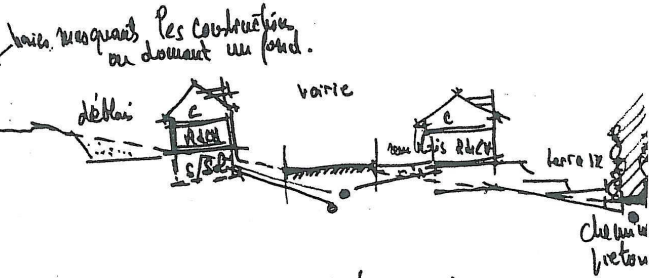 haies masquant les constructions
ou donnant un fond.
déblais
voirie
C
RdCH
S/Sol
C
remblais RdCH
terrasse
chemin
pieton